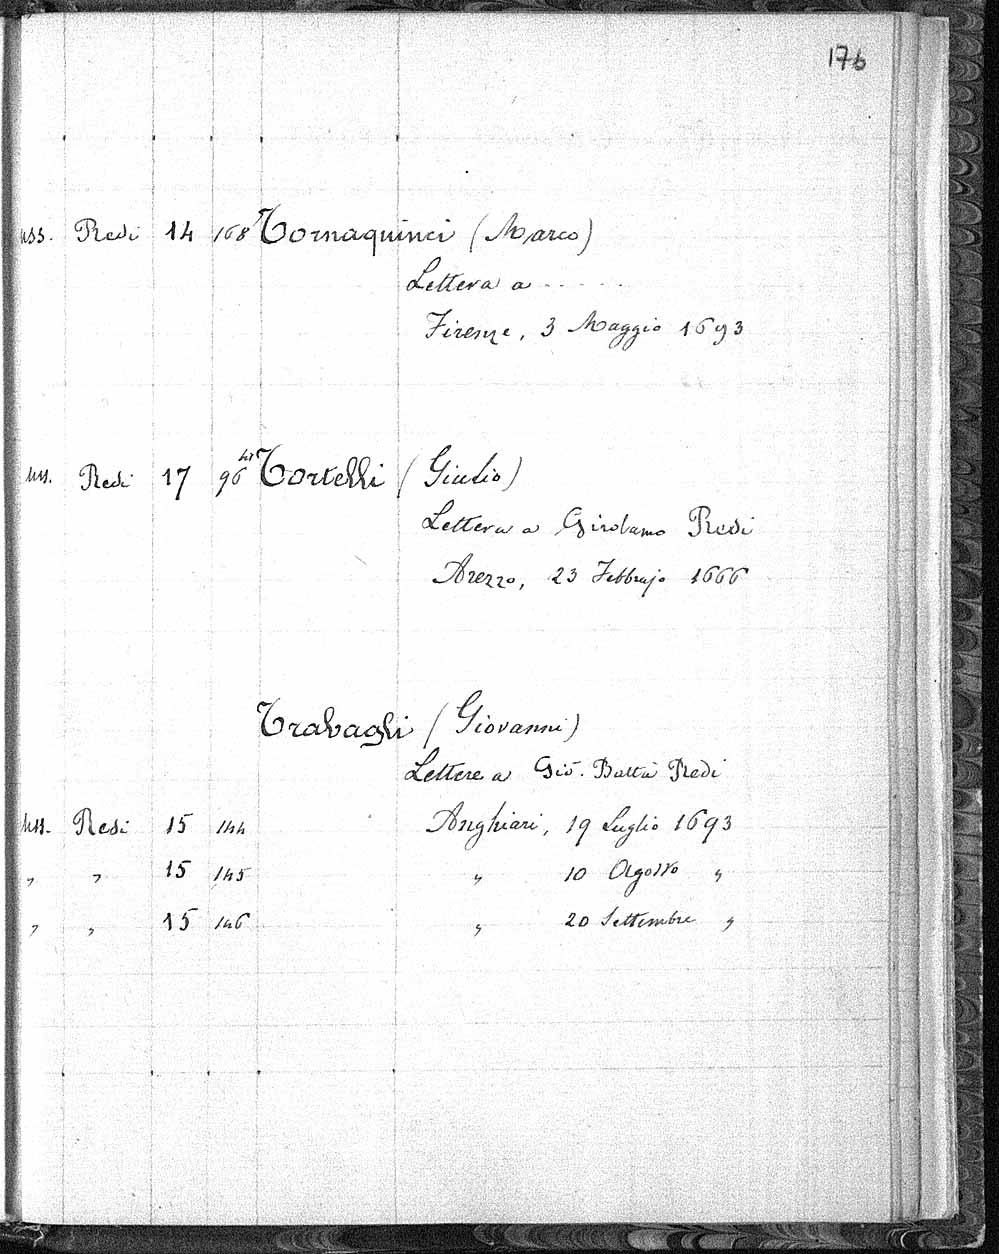 176
Mss. Redi 14 168 Tornaquinci (Marco)
Lettera a .....
Firenze, 3 Maggio 1693
Mss. Redi 17 96 Tortelli (Giulio)
Lettera a Girolamo Redi
Arezzo, 23 Febbrajo 1666
Trabagli (Giovanni)
Lettere a Gio. Batta Redi
Mss. Redi 15 144 Anghiari, 19 Luglio 1693
" " 15 145 " 10 Agosto "
" " 15 146 " 20 Settembre "